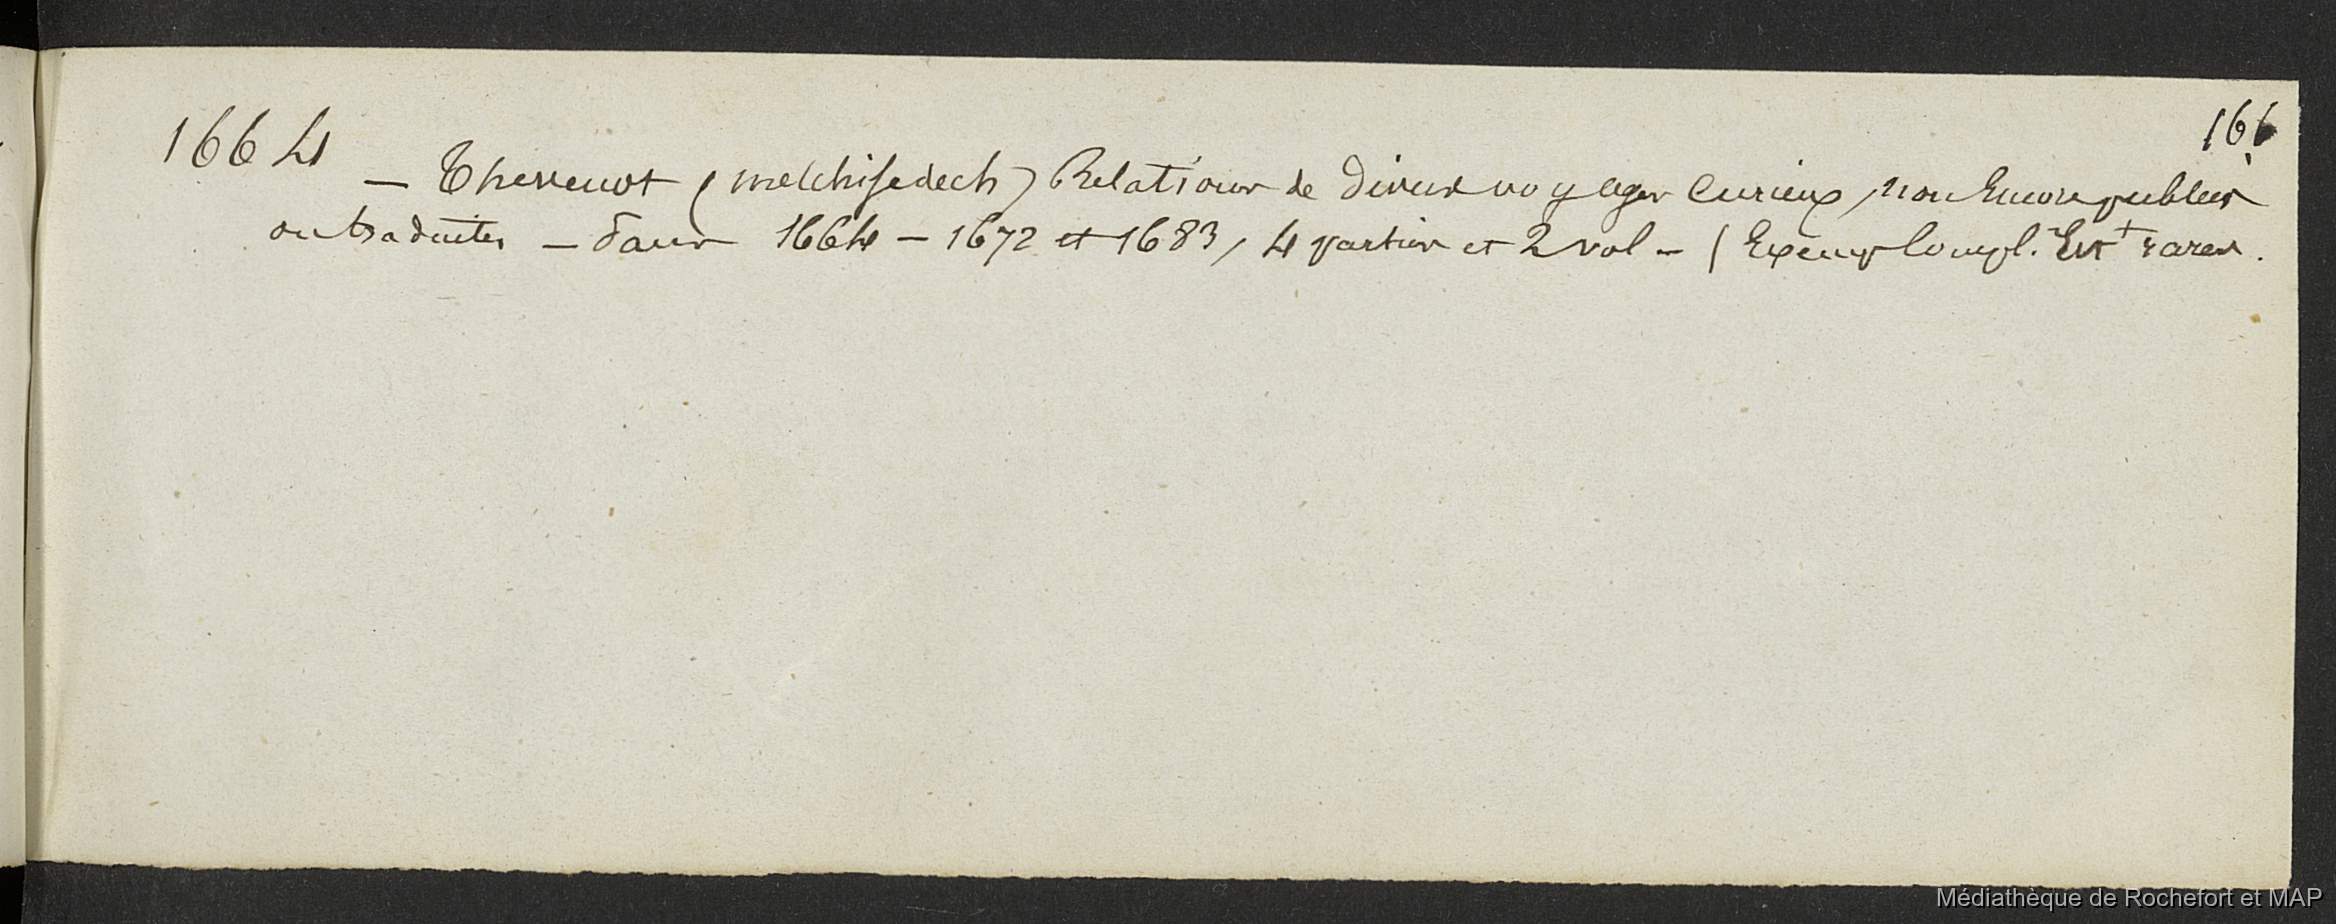 1664
166
— Thevenot (melchisedech) Relations de divers voyages curieux, non Encore publiés
ou traduites — Paris 1664 — 1672 et 1683, 4 parties et 2 vol — ( Exemp Compl. Ext rares.
Médiathèque de Rochefort et MAP